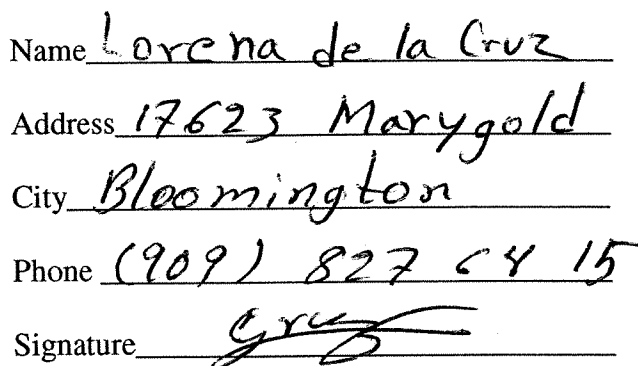 Name Lorena de la Cruz
Address 17623 Marygold
City Bloomington
Phone (909) 827 15
Signature